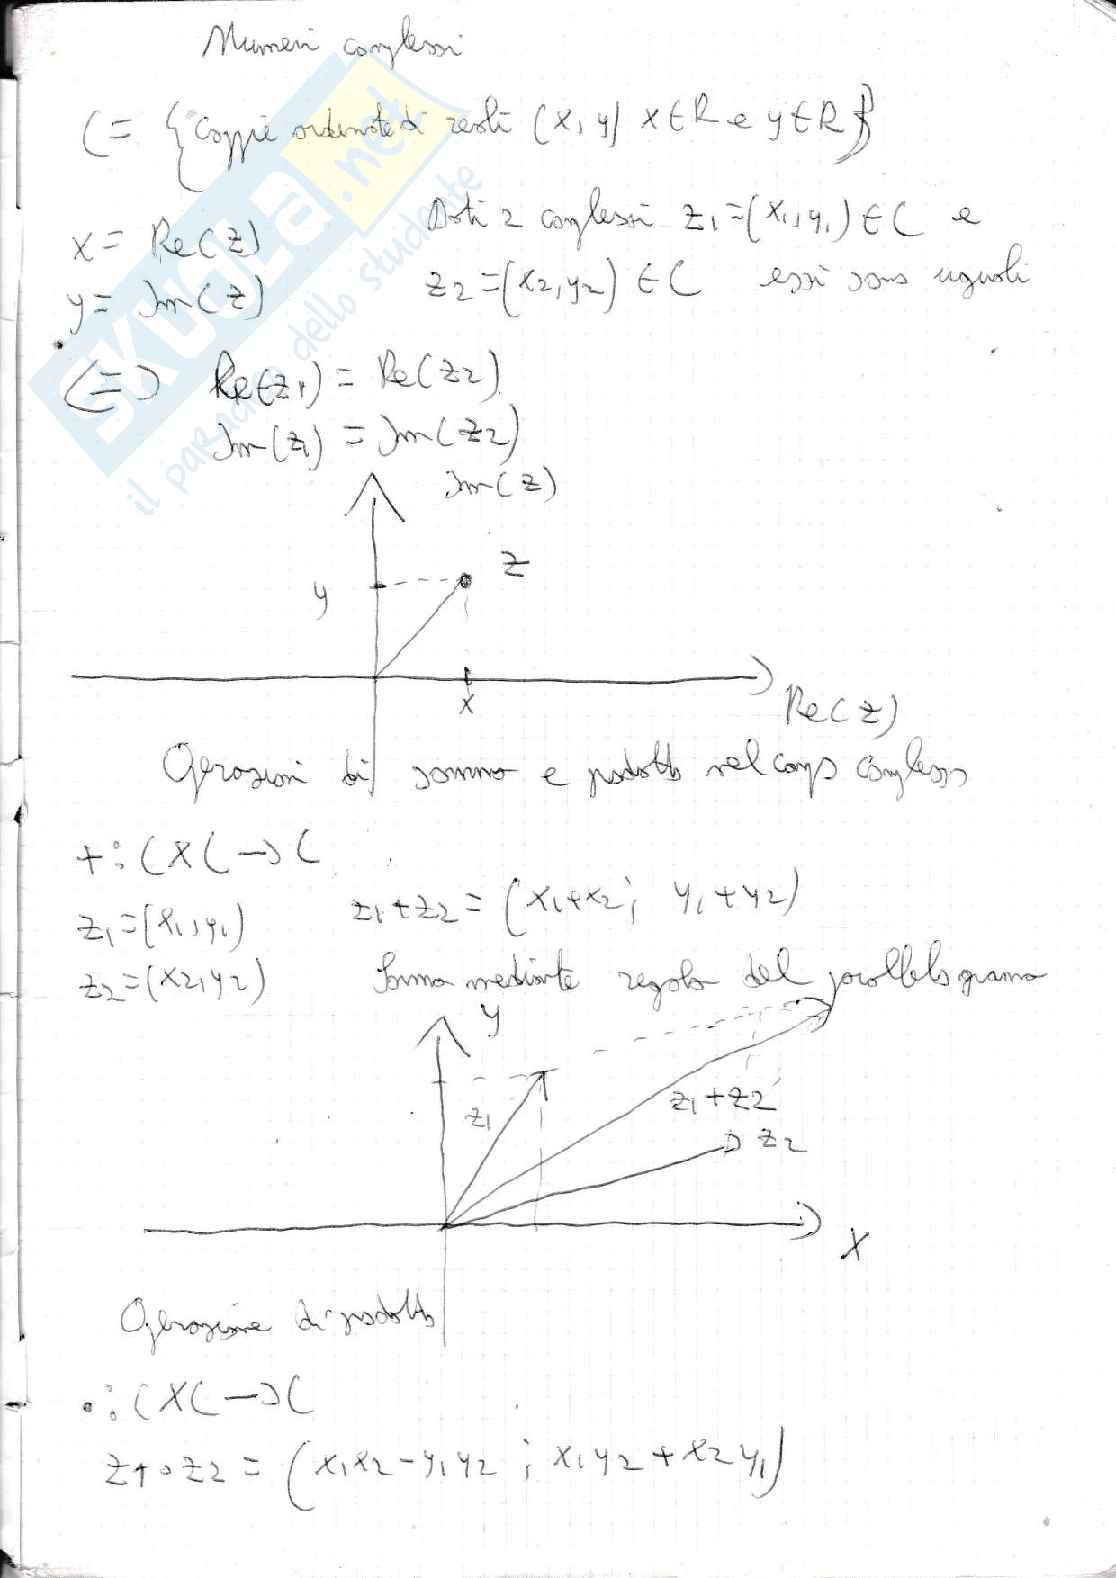 Numeri complessi
C = {Coppie ordinate di reali (x, y) x ∈ R e y ∈ R}
x = Re(z)
y = Im(z)
Dati 2 complessi z1 = (x1, y1) ∈ C e
z2 = (x2, y2) ∈ C essi sono uguali
(=) Re(z1) = Re(z2)
Im(z1) = Im(z2)
Im(z)
z
y
x
Re(z)
Operazioni di somma e prodotto nel campo complesso
+ : C X C → C
z1 = (x1, y1)
z2 = (x2, y2)
z1 + z2 = (x1 + x2 ; y1 + y2)
Somma mediante regola del parallelogramma
y
z1
z1 + z2
z2
X
Operazione di prodotto
• : C X C → C
z1 • z2 = (x1x2 - y1y2 ; x1y2 + x2y1)
SKUOLA.net
il paradiso dello studente